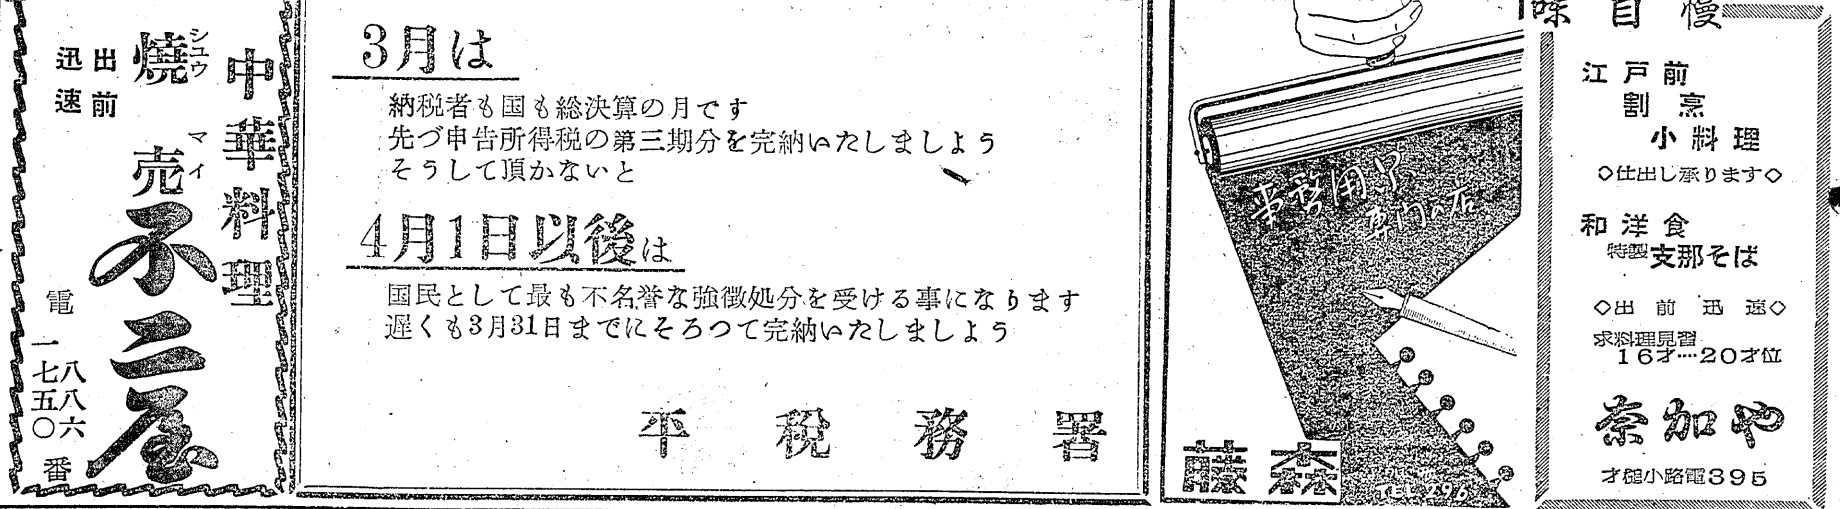 中華料理
シユウマイ
燒売
不二屋
出前
迅速
電
八八六
一七五〇
番
3月は
納税者も国も総決算の月です
先づ申告所得税の第三期分を完納いたしましよう
そうして頂かないと
4月1日以後は
国民として最も不名誉な強徴処分を受ける事になります
遅くも3月31日までにそろつて完納いたしましよう
平税務署
事務用品
専門の店
藤森
TEL.296
味自慢
江戸前
割烹
小料理
◇仕出し承ります◇
和洋食
特製支那そば
◇出前迅速◇
求料理見習
16才…20才位
奈加や
才槌小路電395